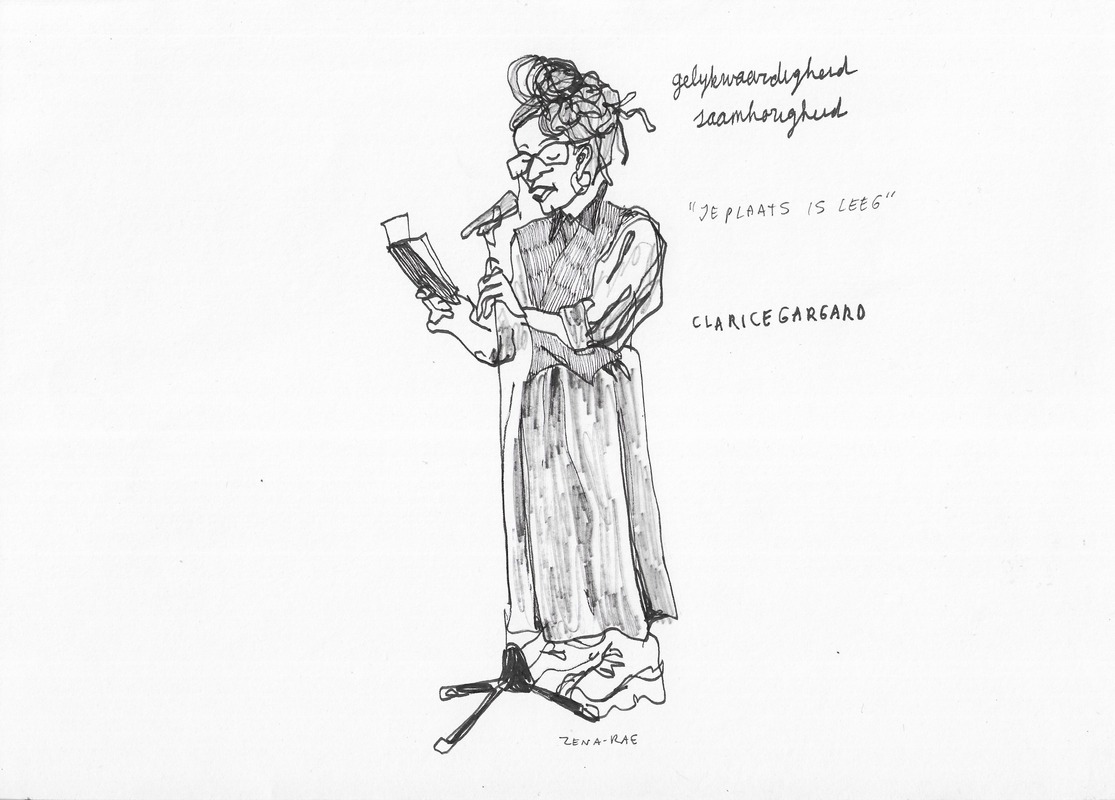 gelijkwaardigheid
saamhorigheid
"JE PLAATS IS LEEG"
CLARICE GARGARD
ZENA-RAE